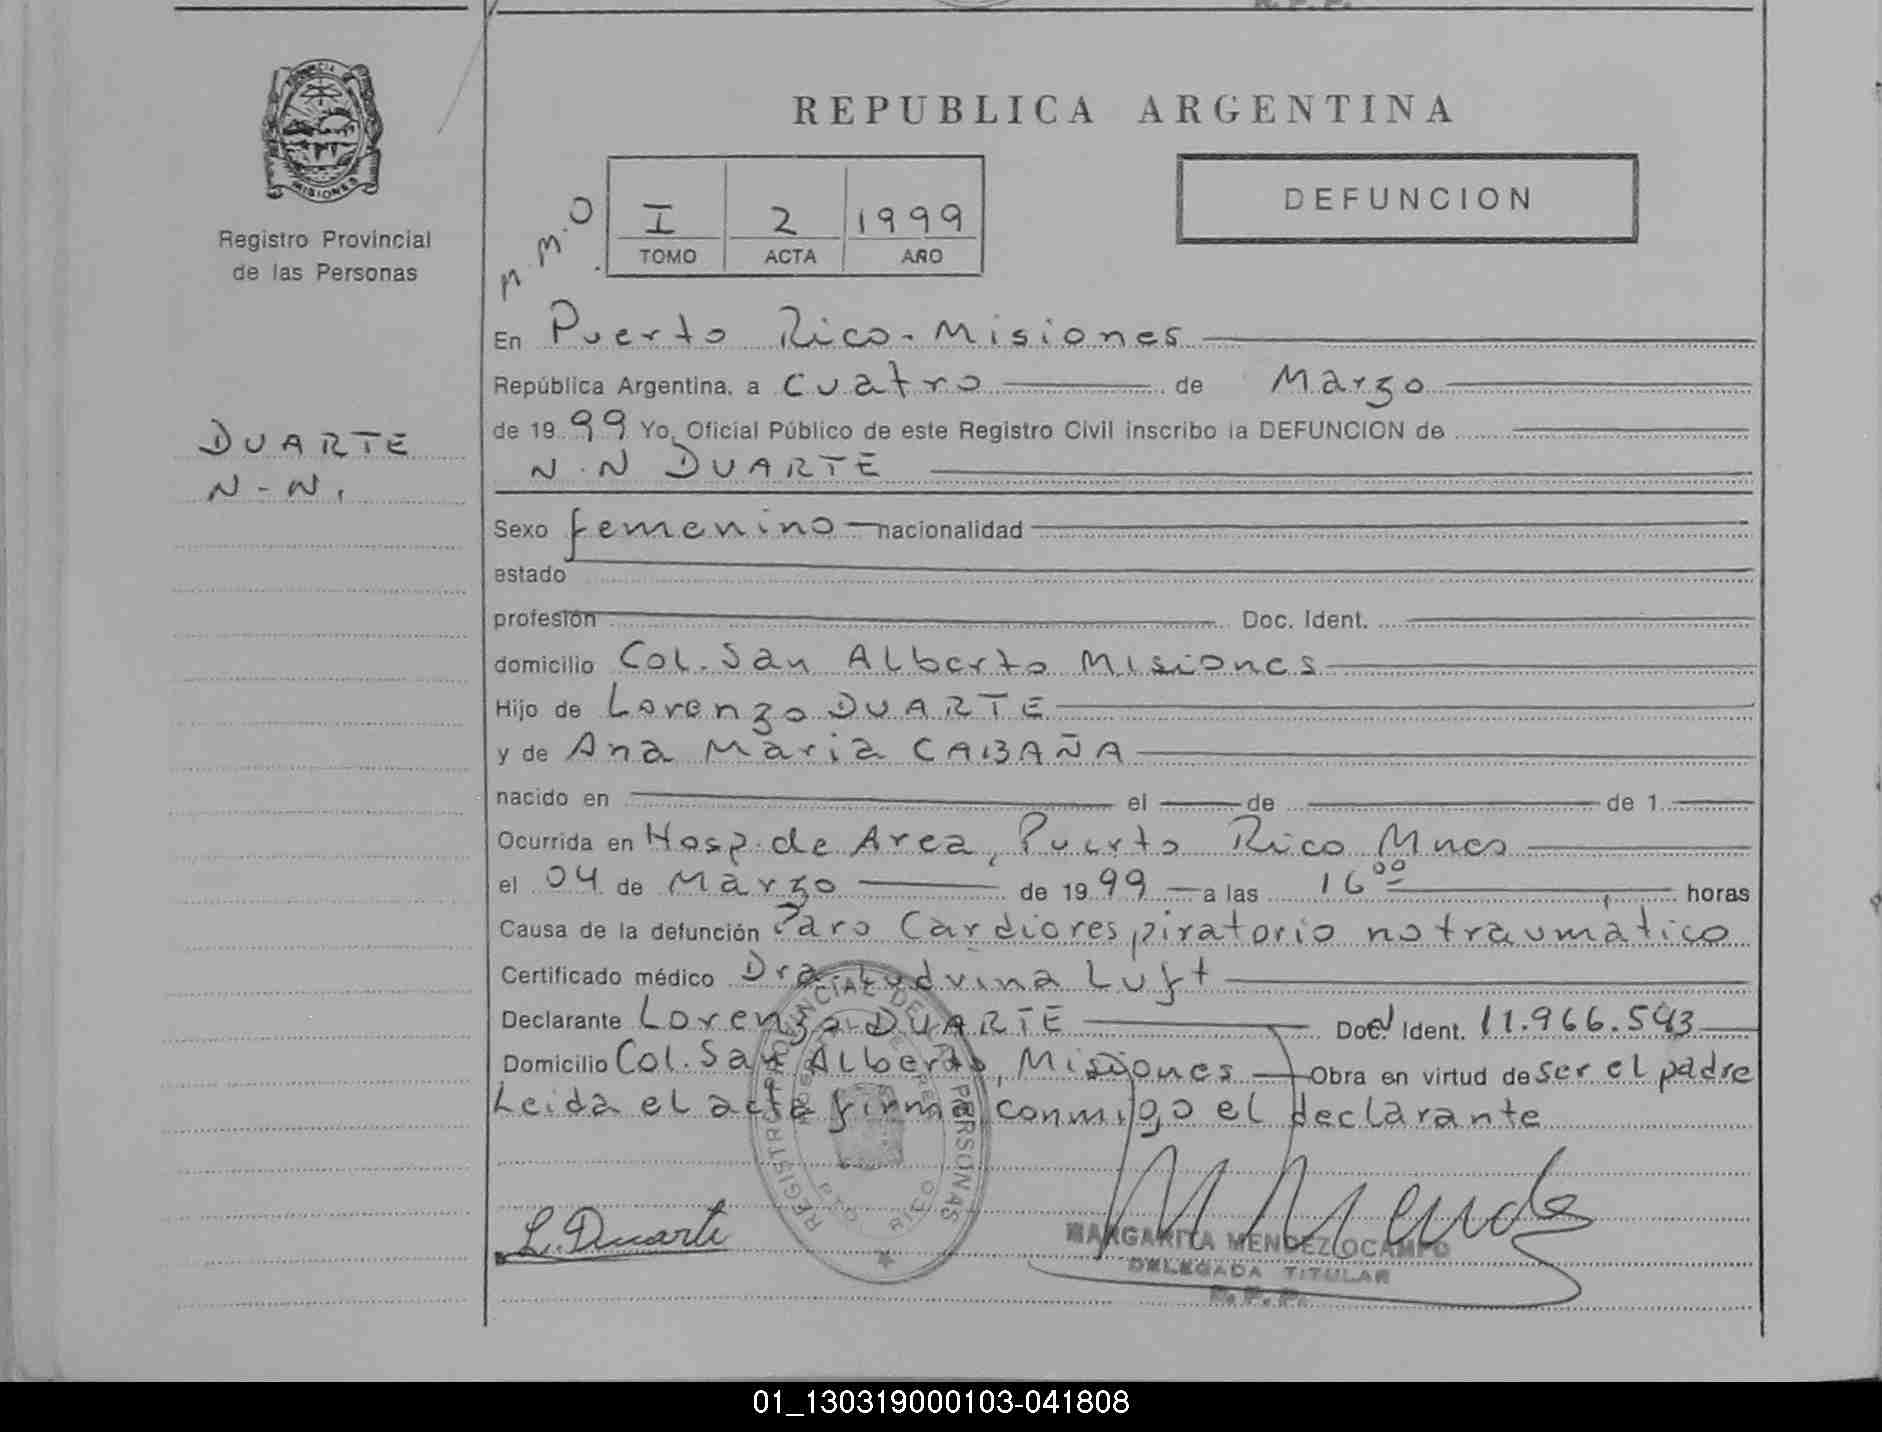 R.P.P.
PROVINCIA
MISIONES
Registro Provincial
de las Personas
DUARTE
N-N.
REPUBLICA ARGENTINA
M.M.O
I 2 1999
TOMO ACTA AÑO
DEFUNCION
En Puerto Rico-Misiones
República Argentina, a cuatro de Marzo
de 1999 Yo, Oficial Público de este Registro Civil inscribo la DEFUNCION de
N.N DUARTE
Sexo femenino nacionalidad
estado
profesión Doc. Ident.
domicilio Col. San Alberto Misiones
Hijo de Lorenzo DUARTE
y de Ana Maria CABAÑA
nacido en el de de 1
Ocurrida en Hosp. de Area, Puerto Rico Mnes
el 04 de Marzo de 1999 a las 16 00 horas
Causa de la defunción Paro Cardiorespiratorio no traumático
Certificado médico Dra. Ludvina Luft
Declarante Lorenzo DUARTE Doc. Ident. 11.966.543
Domicilio Col. San Alberto, Misiones Obra en virtud de ser el padre
Leida el acta firma conmigo el declarante
REGISTRO PROVINCIAL DE LAS PERSONAS
PTO RICO
L. Duarte
M Mendez
MARGARITA MENDEZ OCAMPO
DELEGADA TITULAR
R.P.P.
01_130319000103-041808